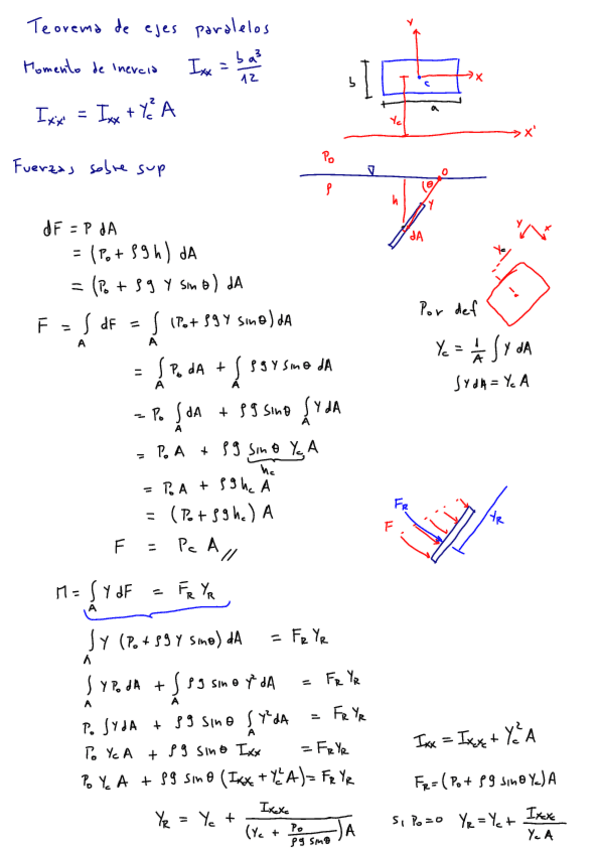 Teorema de ejes paralelos
Momento de inercia Ixx = b a³ / 12
Ix'x' = Ixx + Yc² A
Y
X
c
b
a
Yc
X'
Fuerzas sobre sup
P₀
ρ
O
θ
h
Y
dA
dF = P dA
= (P₀ + ρg h) dA
= (P₀ + ρg Y sin θ) dA
F = ∫_A dF = ∫_A (P₀ + ρg Y sin θ) dA
= ∫_A P₀ dA + ∫_A ρg Y sin θ dA
= P₀ ∫_A dA + ρg sin θ ∫_A Y dA
= P₀ A + ρg sin θ Yc A
hc
= P₀ A + ρg hc A
= (P₀ + ρg hc) A
F = Pc A //
Y
X
Yc
Por def
Yc = 1/A ∫ Y dA
∫ Y dA = Yc A
FR
F
YR
M = ∫_A Y dF = FR YR
∫_A Y (P₀ + ρg Y sin θ) dA = FR YR
∫_A Y P₀ dA + ∫_A ρg sin θ Y² dA = FR YR
P₀ ∫ Y dA + ρg sin θ ∫_A Y² dA = FR YR
P₀ Yc A + ρg sin θ Ixx = FR YR
P₀ Yc A + ρg sin θ (Ixcxc + Yc² A) = FR YR
YR = Yc + Ixcxc / (Yc + P₀ / ρg sin θ) A
Ixx = Ixcxc + Yc² A
FR = (P₀ + ρg sin θ Yc) A
si P₀ = 0 YR = Yc + Ixcxc / Yc A